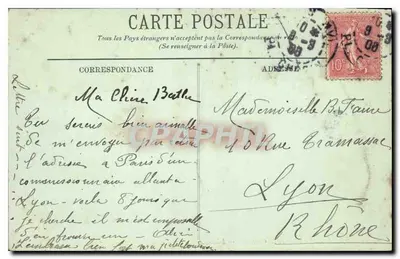 CARTE POSTALE
Tous les Pays étrangers n'acceptent pas la Correspondance
(Se renseigner à la Poste).
CORRESPONDANCE
Ma Chère Berthe
Tu serais bien aimable
de m'envoyer par
l'adresse à Paris d'un
commissionnaire allant à
Lyon - voilà 8 jours que
je cherche il m'est impossible
d'en trouver un
Lettre suit
Mademoiselle B. Faure
40 Rue Tramassac
Lyon
Rhône